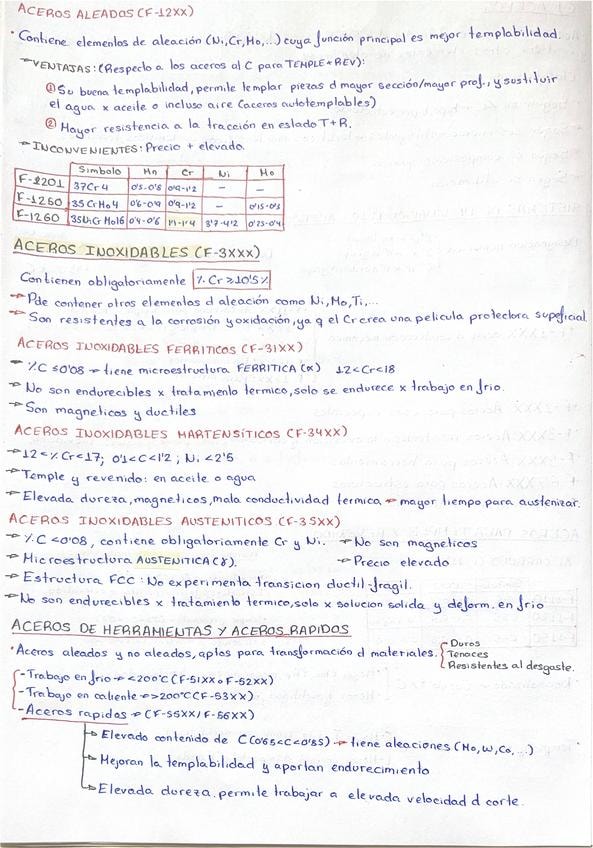 ACEROS ALEADOS (F-12XX)
• Contiene elementos de aleación (Ni, Cr, Mo, ...) cuya función principal es mejor templabilidad.
VENTAJAS: (Respecto a los aceros al C para TEMPLE+REV):
① Su buena templabilidad, permite templar piezas d mayor sección/mayor prof., y sustituir
el agua x aceite o incluso aire (aceros autotemplables)
② Mayor resistencia a la tracción en estado T+R.
INCONVENIENTES: Precio + elevado.
Simbolo Mn Cr Ni Mo
F-1201 37Cr4 0'5-0'8 0'9-1'2 - -
F-1250 35CrMo4 0'6-0'9 0'9-1'2 - 0'15-0'3
F-1260 35NiCrMo16 0'4-0'6 1'4 3'7-4'2 0'25-0'4
ACEROS INOXIDABLES (F-3XXX)
Contienen obligatoriamente % Cr ≥ 10'5%
Pde contener otros elementos d aleación como Ni, Mo, Ti, ...
Son resistentes a la corosión y oxidación, ya q el Cr crea una pelicula protectora supeficial
ACEROS INOXIDABLES FERRITICOS (F-31XX)
%C ≤ 0'08 → tiene microestructura FERRITICA (α) 12<Cr<18
No son endurecibles x tratamiento termico, solo se endurece x trabajo en frio.
Son magneticos y ductiles
ACEROS INOXIDABLES MARTENSÍTICOS (F-34XX)
12<%Cr<17; 0'1<C<1'2; Ni<2'5
Temple y revenido: en aceite o agua
Elevada dureza, magneticos, mala conductividad termica → mayor tiempo para austenizar.
ACEROS INOXIDABLES AUSTENITICOS (F-35XX)
%C<0'08, contiene obligatoriamente Cr y Ni. → No son magneticos
Microestructura AUSTENITICA (γ). → Precio elevado
Estructura FCC: No experimenta transicion ductil-fragil.
No son endurecibles x tratamiento termico, solo x solucion solida y deform. en frio
ACEROS DE HERRAMIENTAS Y ACEROS RAPIDOS
• Aceros aleados y no aleados, aptos para transformación d materiales. Duros
Tenaces
Resistentes al desgaste.
- Trabajo en frio → <200°C (F-51XX o F-52XX)
- Trabajo en caliente → >200°C (F-53XX)
- Aceros rapidos → (F-55XX/F-56XX)
Elevado contenido de C (0'65<C<0'85) → tiene aleaciones (Mo, W, Co, ...)
Mejoran la templabilidad y aportan endurecimiento
Elevada dureza. permite trabajar a elevada velocidad d corte.